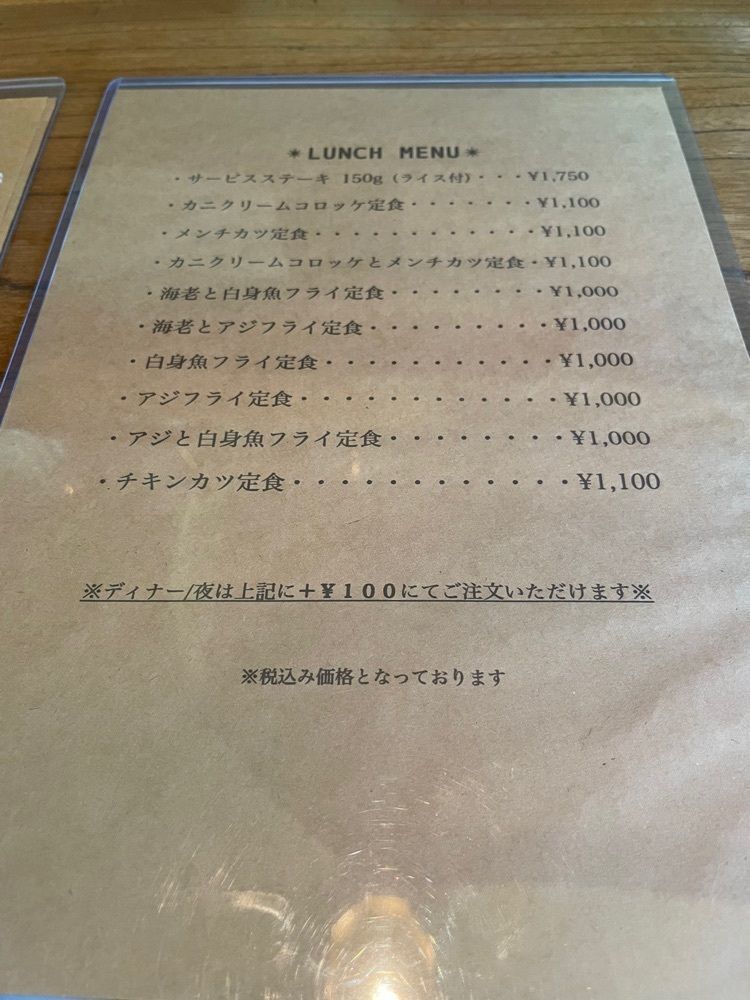 ✴LUNCH MENU✴
・サービスステーキ 150g (ライス付)・・・¥1,750
・カニクリームコロッケ定食・・・・・・・¥1,100
・メンチカツ定食・・・・・・・・・・・・¥1,100
・カニクリームコロッケとメンチカツ定食・¥1,100
・海老と白身魚フライ定食・・・・・・・・¥1,000
・海老とアジフライ定食・・・・・・・・・¥1,000
・白身魚フライ定食・・・・・・・・・・・¥1,000
・アジフライ定食・・・・・・・・・・・・¥1,000
・アジと白身魚フライ定食・・・・・・・・¥1,000
・チキンカツ定食・・・・・・・・・・・・¥1,100
※ディナー/夜は上記に+¥100にてご注文いただけます※
※税込み価格となっております